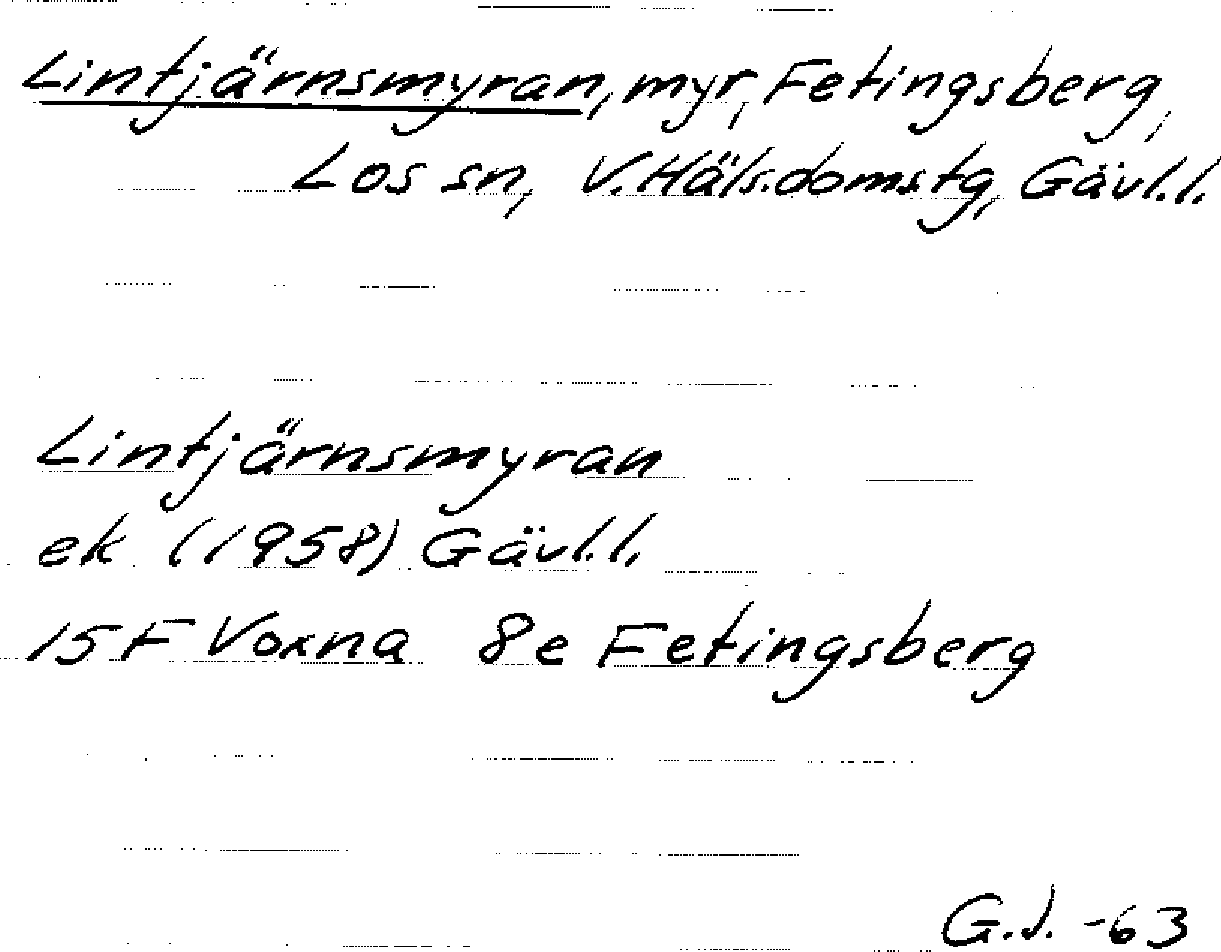 Lintjärnsmyran, myr, Fetingsberg,
Los sn, V.Häls.domstg, Gävl.l.
Lintjärnsmyran
ek (1958) Gävl.l.
15F Voxna 8e Fetingsberg
G.J. -63